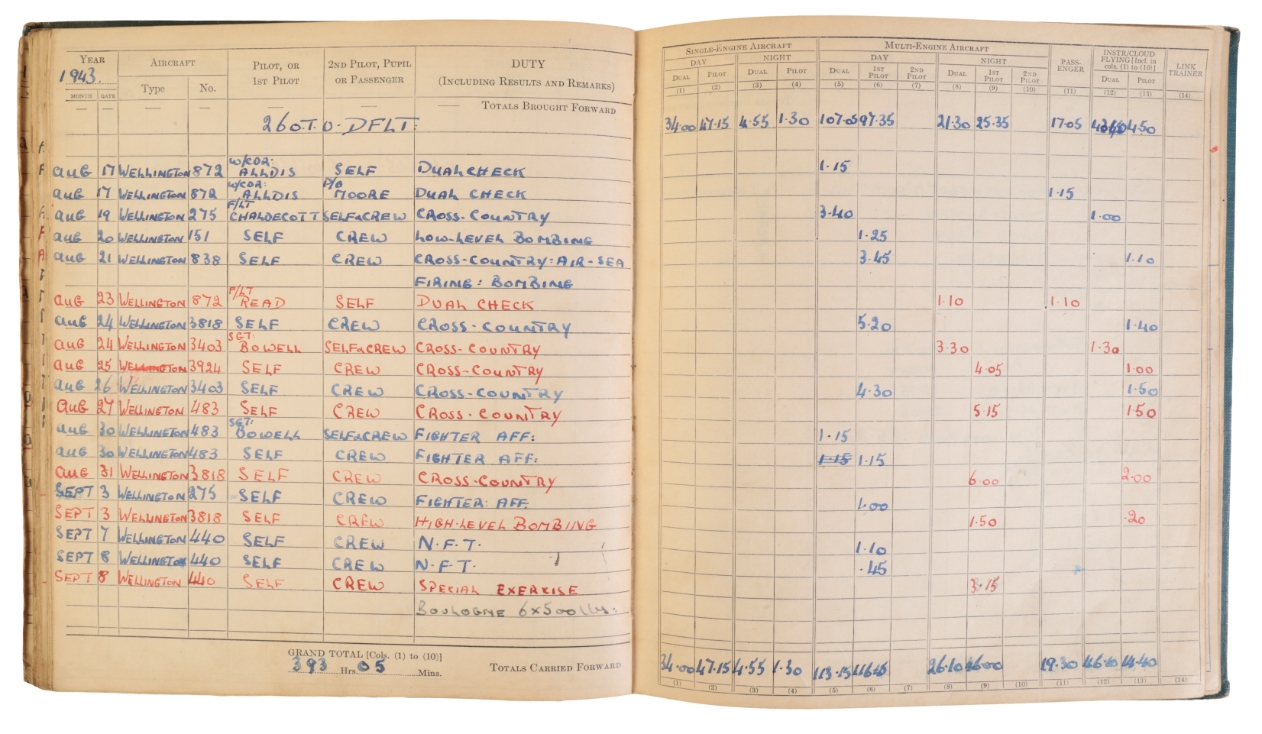 YEAR AIRCRAFT PILOT, OR 1ST PILOT 2ND PILOT, PUPIL OR PASSENGER DUTY (INCLUDING RESULTS AND REMARKS) SINGLE-ENGINE AIRCRAFT MULTI-ENGINE AIRCRAFT PASS-ENGER INSTR/CLOUD FLYING [Incl. in cols. (1) to (10)] LINK TRAINER
1943. DAY NIGHT DAY NIGHT
MONTH DATE Type No. DUAL PILOT DUAL PILOT DUAL 1ST PILOT 2ND PILOT DUAL 1ST PILOT 2ND PILOT DUAL PILOT
(1) (2) (3) (4) (5) (6) (7) (8) (9) (10) (11) (12) (13) (14)
— — — — — — — TOTALS BROUGHT FORWARD
26 O.T.U. DFLT: 34.00 47.15 4.55 1.30 107.05 97.35 21.30 25.35 17.05 4.50
AUG 17 WELLINGTON 872 W/CDR: ALLDIS SELF DUAL CHECK 1.15
AUG 17 WELLINGTON 872 W/CDR: ALLDIS P/O MOORE DUAL CHECK 1.15
AUG 19 WELLINGTON 275 F/LT CHALDECOTT SELF&CREW CROSS-COUNTRY 3.40 1.00
AUG 20 WELLINGTON 151 SELF CREW LOW-LEVEL BOMBING 1.25
AUG 21 WELLINGTON 838 SELF CREW CROSS-COUNTRY: AIR-SEA 3.45 1.10
FIRING: BOMBING
AUG 23 WELLINGTON 872 F/LT READ SELF DUAL CHECK 1.10 1.10
AUG 24 WELLINGTON 3818 SELF CREW CROSS-COUNTRY 5.20 1.40
AUG 24 WELLINGTON 3403 SGT: BOWELL SELF&CREW CROSS-COUNTRY 3.30 1.30
AUG 25 WELLINGTON 3924 SELF CREW CROSS-COUNTRY 4.05 1.00
AUG 26 WELLINGTON 3403 SELF CREW CROSS-COUNTRY 4.30 1.50
AUG 27 WELLINGTON 483 SELF CREW CROSS-COUNTRY 5.15 1.50
AUG 30 WELLINGTON 483 SGT: BOWELL SELF&CREW FIGHTER AFF: 1.15
AUG 30 WELLINGTON 483 SELF CREW FIGHTER AFF: 1.15 1.15
AUG 31 WELLINGTON 3818 SELF CREW CROSS-COUNTRY 6.00 2.00
SEPT 3 WELLINGTON 275 SELF CREW FIGHTER: AFF. 1.00
SEPT 3 WELLINGTON 3818 SELF CREW HIGH-LEVEL BOMBING 1.50 .20
SEPT 7 WELLINGTON 440 SELF CREW N.F.T. 1.10
SEPT 8 WELLINGTON 440 SELF CREW N.F.T. .45
SEPT 8 WELLINGTON 440 SELF CREW SPECIAL EXERCISE 3.15
BOULOGNE 6x500 lbs.
GRAND TOTAL [Cols. (1) to (10)]
393 Hrs. 05 Mins. TOTALS CARRIED FORWARD 34.00 47.15 4.55 1.30 113.15 26.10 19.30 14.40
(1) (2) (3) (4) (5) (6) (7) (8) (9) (10) (11) (12) (13) (14)